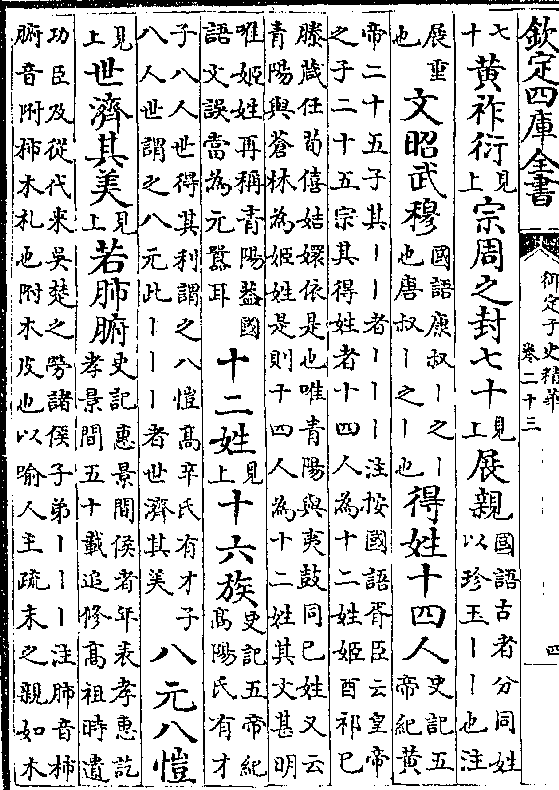 欽定四庫全書
御定子史精華
卷二十三
四
七
十
黄祚衍
見
上
宗周之封七十
見
上
展親
國語古者分同姓
以珍玉丨丨也注
展重
也
文昭武穆
國語康叔丨之丨
也唐叔丨之丨也
得姓十四人
史記五
帝紀黄
帝二十五子其丨丨者丨丨丨丨注按國語胥臣云皇帝
之子二十五宗其得姓者十四人為十二姓姬酉祁巳
滕葴任荀僖姞嬛依是也唯青陽與夷鼓同巳姓又云
青陽與蒼林為姬姓是則十四人為十二姓其文甚明
唯姬姓再稱青陽葢國
語文誤當為元囂耳
十二姓
見
上
十六族
史記五帝紀
髙陽氏有才
子八人世得其利謂之八愷髙辛氏有才子
八人世謂之八元此丨丨丨者世濟其美
八元八愷
見
上
世濟其美
見
上
若肺腑
史記惠景間侯者年表孝惠訖
孝景間五十載追修髙祖時遺
功臣及從代來吳楚之勞諸侯子弟丨丨丨注肺音柿
腑音附柿木札也附木皮也以喻人主疏末之親如木